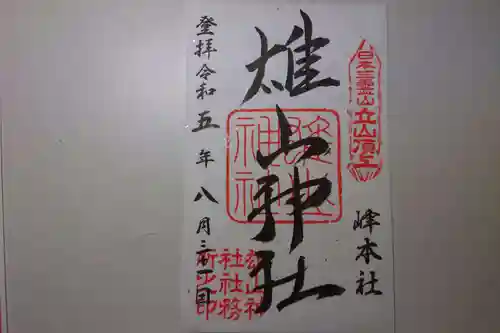 日本三霊山
立山頂上
峰本社
雄山神社
雄山神社
登拝令和五年八月三十一日
雄山神
社社務
所之印